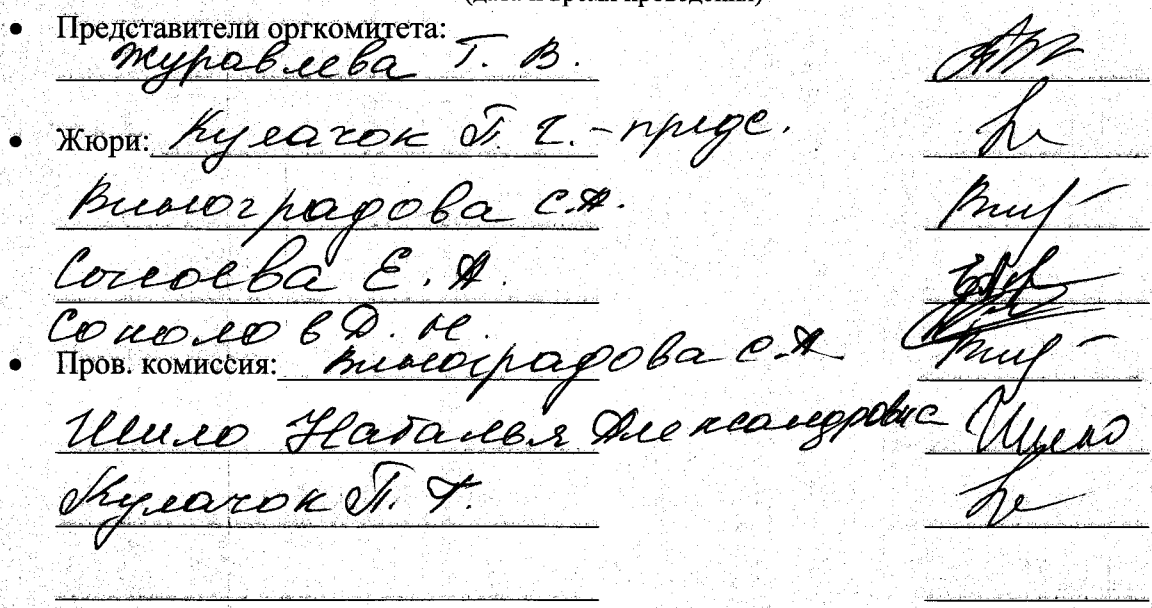 (дата и время проведения)
• Представители оргкомитета:
Журавлева Т. В.
• Жюри: Кулачок П. Г. - предс.
Виноградова С.А.
Е. А.
Соколов Д. Н.
• Пров. комиссия: Виноградова С.А
Шило Наталья Александровна Шило
Кулачок П. Г.